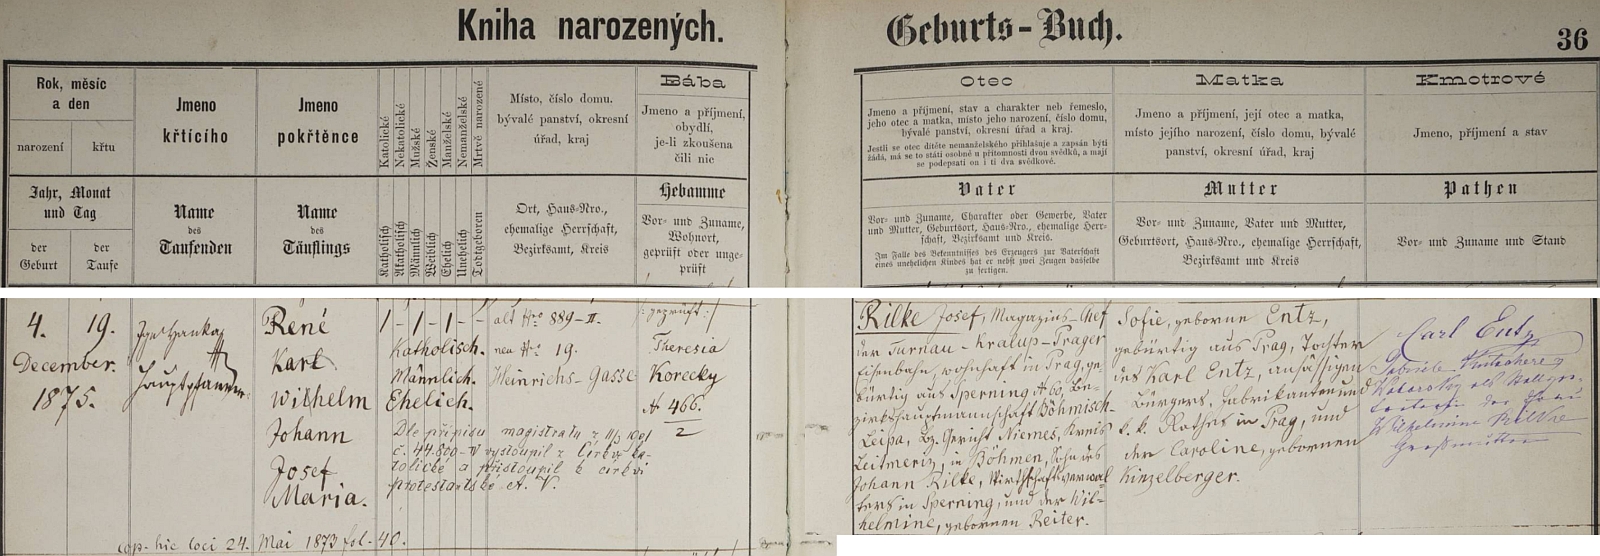 Kniha narozených.
Geburts-Buch.
36
Rok, měsíc
a den
narození
křtu
Jahr, Monat
und Tag
der
Geburt
der
Taufe
Jmeno
křtícího
Name
des
Taufenden
Jmeno
pokřtěnce
Name
des
Täuflings
Katolické
Nekatolické
Mužské
Ženské
Manželské
Nemanželské
Mrtvě narozené
Katholisch
Akatholisch
Männlich
Weiblich
Ehelich
Unehelich
Todtgeboren
Místo, číslo domu.
bývalé panství, okresní
úřad, kraj
Ort, Haus-Nro.,
ehemalige Herrschaft,
Bezirksamt, Kreis
Bába
Jmeno a příjmení,
obydlí,
je-li zkoušena
čili nic
Hebamme
Vor- und Zuname,
Wohnort,
geprüft oder unge-
prüft
Otec
Jmeno a příjmení, stav a charakter neb řemeslo,
jeho otec a matka, místo jeho narození, číslo domu,
bývalé panství, okresní úřad a kraj.
Jestli se otec dítěte nemanželského přihlašuje a zapsán býti
žádá, má se to státi osobně u přítomnosti dvou svědků, a mají
se podepsati on i ti dva svědkové.
Vater
Vor- und Zuname, Charakter oder Gewerbe, Vater
und Mutter, Geburtsort, Haus-Nro., ehemalige Herr-
schaft, Bezirksamt und Kreis.
Im Falle des Bekenntnisses des Erzeugers zur Vaterschaft
eines unehelichen Kindes hat er nebst zwei Zeugen dasselbe
zu fertigen.
Matka
Jmeno a příjmení, její otec a matka,
místo jejího narození, číslo domu, bývalé
panství, okresní úřad, kraj
Mutter
Vor- und Zuname, Vater und Mutter,
Geburtsort, Haus-Nro., ehemalige Herrschaft,
Bezirksamt und Kreis
Kmotrové
Jmeno, příjmení a stav
Pathen
Vor- und Zuname und Stand
4. 19.
December.
1875.
Hauptpfarrer
René
Karl
Wilhelm
Johann
Josef
Maria.
1 - 1 - 1 - -
Katholisch.
Männlich.
Ehelich.
Dle přípisu magistrátu z 11/3 1901
č. 44.800-V vystoupil z církve ka-
tolické a přistoupil k církvi
protestantské A. V.
alt Nro 889-II.
neu Nro 19.
Heinrichs-Gasse
/: geprüft :/
Theresia
Korecky
N 466.
2
Rilke Josef, Magazins-Chef
der Turnau-Kralup-Prager
Eisenbahn, wohnhaft in Prag, ge-
bürtig aus Sperning N 60, Be-
zirkshauptmannschaft Böhmisch-
Leipa, Bez. Gericht Niemes, Kreis
Leitmeritz, in Böhmen, Sohn des
Johann Rilke, Wirthschaftsverwal-
ters in Sperning, und der Wil-
helmine, gebornen Reiter.
Sofie, geborne Entz,
gebürtig aus Prag, Tochter
des Karl Entz, ansässigen
Bürgers, Fabrikanten und
k. k. Rathes in Prag, und
der Caroline, gebornen
Kinzelberger.
Carl Entz
Gabriele
als Stellver-
treterin der Frau
Wilhelmine Rilke
Großmutter
cop. hic loci 24. Mai 1873 fol. 40.